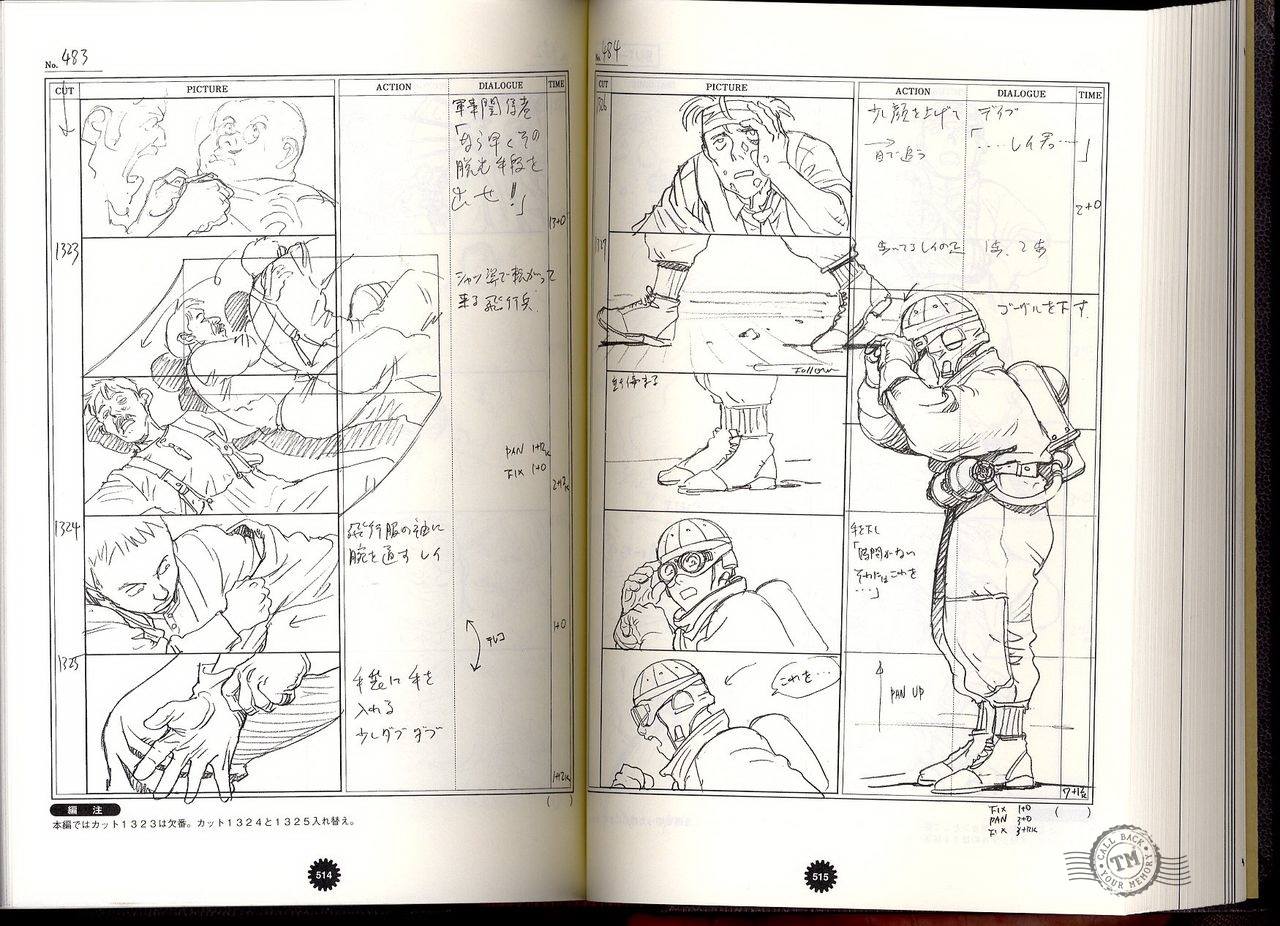 No. 483
CUT
PICTURE
ACTION
DIALOGUE
TIME
軍事関係者
「なら早くその
脱出手段を
出せ!」
13+0
1323
シャツ姿で転がって
来る飛行兵.
PAN 1+12k
FIX 1+0
2+12k
1324
飛行服の袖に
腕を通す レイ
1+0
1325
手袋に手を
入れる
少しダブダブ
1+12k
( )
編 注
本編ではカット1323は欠番。カット1324と1325入れ替え。
514
No. 484
CUT
PICTURE
ACTION
DIALOGUE
TIME
1326
少し顔を上げて
目で追う
デイブ
「……レイ君っ…」
2+0
歩いてるレイの足 1歩、2歩
Follow
ゴーグルを下す.
手を下し
「時間がない
それにはこれを
…」
これを…
PAN UP
7+12k
FIX 1+0
PAN 3+0
FIX 3+12k
( )
515
CALL BACK
TM
YOUR MEMORY